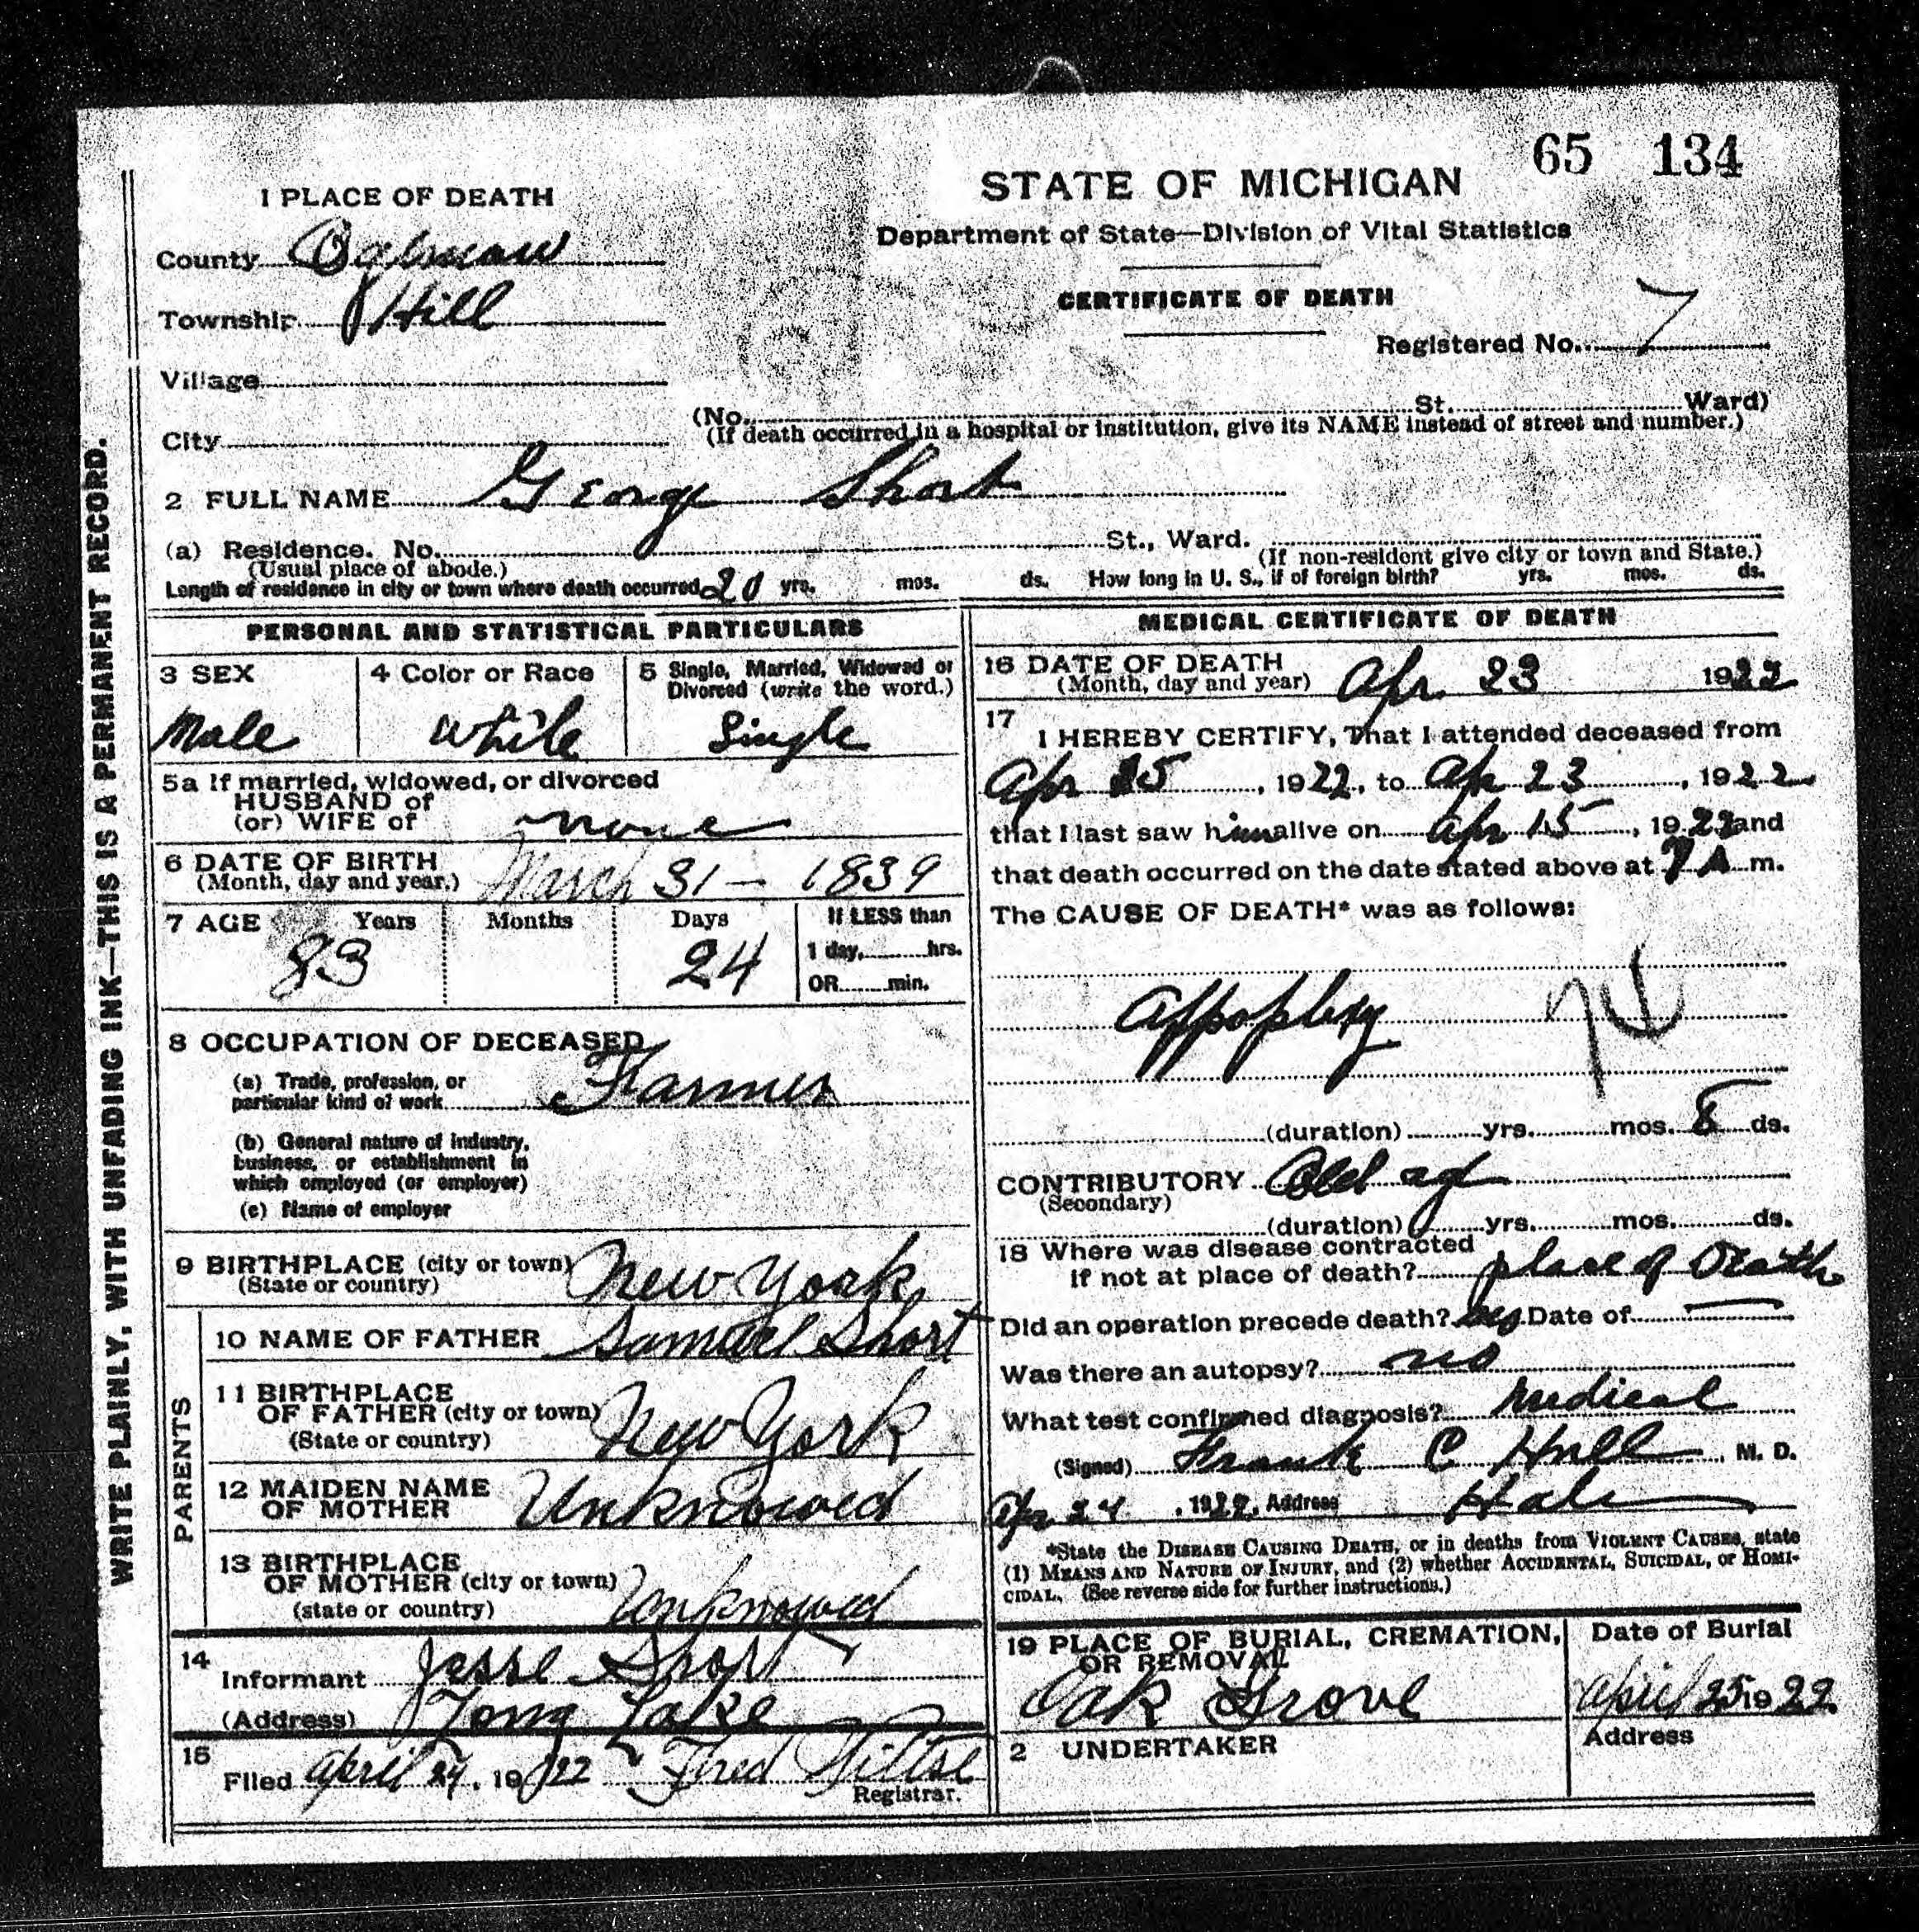 65 134
1 PLACE OF DEATH
STATE OF MICHIGAN
Department of State—Division of Vital Statistics
County Ogemaw
CERTIFICATE OF DEATH
Township Hill
Registered No. 7
Village
(No. St. Ward)
City
(If death occurred in a hospital or institution, give its NAME instead of street and number.)
2 FULL NAME George Short
(a) Residence. No. St., Ward.
(Usual place of abode.)
(If non-resident give city or town and State.)
Length of residence in city or town where death occurred 20 yrs. mos. ds. How long in U. S., if of foreign birth? yrs. mos. ds.
WRITE PLAINLY, WITH UNFADING INK—THIS IS A PERMANENT RECORD.
PERSONAL AND STATISTICAL PARTICULARS
3 SEX
Male
4 Color or Race
White
5 Single, Married, Widowed or
Divorced (write the word.)
Single
5a If married, widowed, or divorced
HUSBAND of
(or) WIFE of none
6 DATE OF BIRTH
(Month, day and year.) March 31 - 1839
7 AGE Years Months Days If LESS than
83 24 1 day, hrs.
OR min.
8 OCCUPATION OF DECEASED
(a) Trade, profession, or
particular kind of work Farmer
(b) General nature of industry,
business, or establishment in
which employed (or employer)
(c) Name of employer
9 BIRTHPLACE (city or town)
(State or country) New York
PARENTS
10 NAME OF FATHER Samuel Short
11 BIRTHPLACE
OF FATHER (city or town)
(State or country) New York
12 MAIDEN NAME
OF MOTHER Unknowed
13 BIRTHPLACE
OF MOTHER (city or town)
(state or country) Unknowed
14
Informant Jesse Short
(Address) Long Lake
15
Filed April 24, 1922 Fred Wiltse
Registrar.
MEDICAL CERTIFICATE OF DEATH
16 DATE OF DEATH
(Month, day and year) Apr. 23 1922
17
I HEREBY CERTIFY, That I attended deceased from
Apr 15, 1922, to Apr 23, 1922
that I last saw him alive on Apr 15, 1922 and
that death occurred on the date stated above at 7 A m.
The CAUSE OF DEATH* was as follows:
Appoplexy 74
(duration) yrs. mos. 8 ds.
CONTRIBUTORY Old age
(Secondary)
(duration) yrs. mos. ds.
18 Where was disease contracted
if not at place of death? place of Death
Did an operation precede death? Date of
Was there an autopsy? no
What test confirmed diagnosis? Medical
(Signed) Frank C Hull, M. D.
Apr 24, 1922, Address Hale
*State the DISEASE CAUSING DEATH, or in deaths from VIOLENT CAUSES, state
(1) MEANS AND NATURE OF INJURY, and (2) whether ACCIDENTAL, SUICIDAL, or HOMI-
CIDAL. (See reverse side for further instructions.)
19 PLACE OF BURIAL, CREMATION,
OR REMOVAL
Oak Grove
Date of Burial
April 25 1922
2 UNDERTAKER
Address